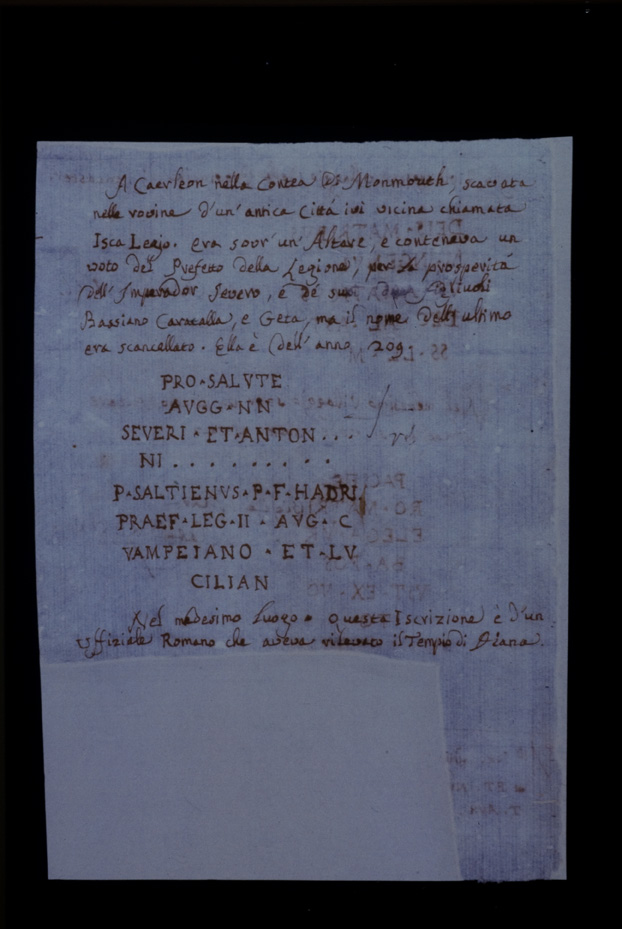 A Caerleon nella Contea di Monmouth, scavata
nelle rovine d'un'antica Città ivi vicina chiamata
Isca Legio. era sovr'un'Altare, e conteneva un
voto del Prefetto della Legione, per la prosperità
dell'Imperador Severo, e de' suoi Figliuoli
Bassiano Caracalla, e Geta, ma il nome dell'ultimo
era scancellato. Ella è dell'anno 209.
PRO SALVTE
AVGG NN
SEVERI ET ANTON....
NI . . . . . . . . .
P SALTIENVS P F HADRI.
PRAEF LEG II AVG C
VAMPEIANO ET LV
CILIAN
Nel medesimo Luogo. Questa Iscrizione è d'un
Uffiziale Romano che aveva rilevato il Tempio di Diana.